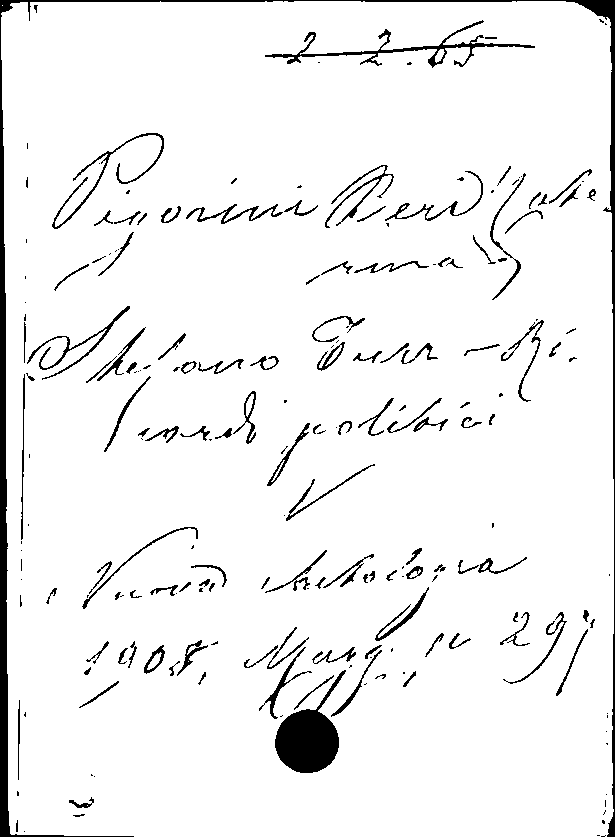 2. 2. 65
Pigorini Beri (Cate-
rina)
Stefano Türr - Ri-
cordi politici
V
Nuova Antologia
1908, Magg., p 297